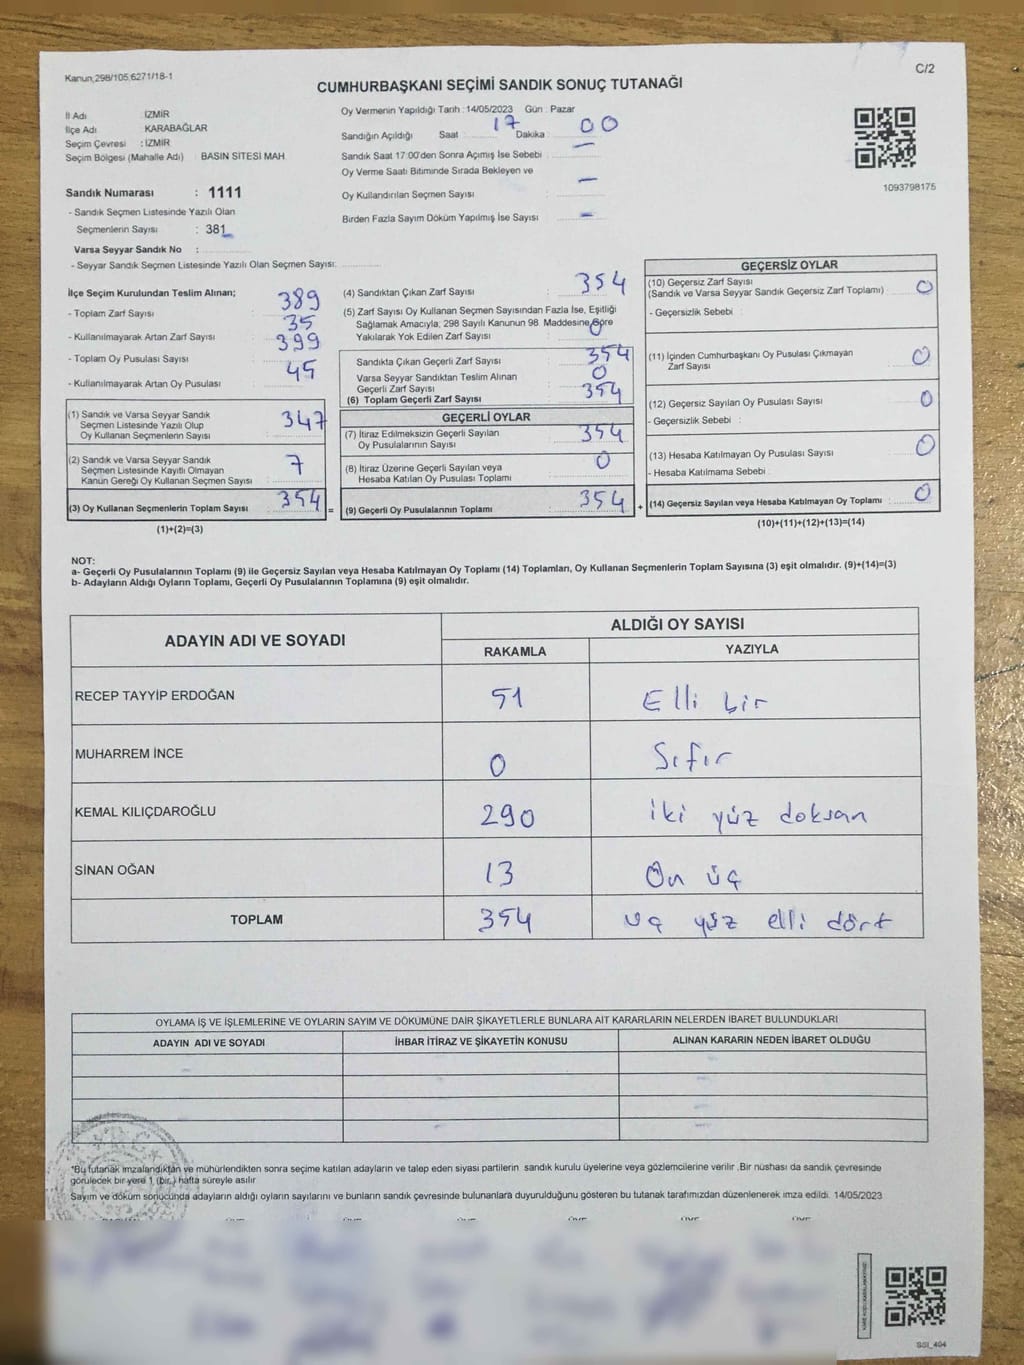 Kanun;298/105,6271/18-1
C/2
CUMHURBAŞKANI SEÇİMİ SANDIK SONUÇ TUTANAĞI
İl Adı İZMİR
İlçe Adı KARABAĞLAR
Seçim Çevresi : İZMİR
Seçim Bölgesi (Mahalle Adı) BASIN SİTESİ MAH
Sandık Numarası : 1111
- Sandık Seçmen Listesinde Yazılı Olan
Seçmenlerin Sayısı : 381
Varsa Seyyar Sandık No :
- Seyyar Sandık Seçmen Listesinde Yazılı Olan Seçmen Sayısı:
Oy Vermenin Yapıldığı Tarih : 14/05/2023 Gün : Pazar
Sandığın Açıldığı Saat : 17 Dakika : 00
Sandık Saat 17:00'den Sonra Açımış İse Sebebi : —
Oy Verme Saati Bitiminde Sırada Bekleyen ve
Oy Kullandırılan Seçmen Sayısı : —
Birden Fazla Sayım Döküm Yapılmış İse Sayısı : —
1093798175
İlçe Seçim Kurulundan Teslim Alınan;
- Toplam Zarf Sayısı : 389
- Kullanılmayarak Artan Zarf Sayısı : 35
- Toplam Oy Pusulası Sayısı : 399
- Kullanılmayarak Artan Oy Pusulası : 45
(1) Sandık ve Varsa Seyyar Sandık
Seçmen Listesinde Yazılı Olup
Oy Kullanan Seçmenlerin Sayısı : 347
(2) Sandık ve Varsa Seyyar Sandık
Seçmen Listesinde Kayıtlı Olmayan
Kanun Gereği Oy Kullanan Seçmen Sayısı : 7
(3) Oy Kullanan Seçmenlerin Toplam Sayısı : 354 =
(1)+(2)=(3)
(4) Sandıktan Çıkan Zarf Sayısı : 354
(5) Zarf Sayısı Oy Kullanan Seçmen Sayısından Fazla İse, Eşitliği
Sağlamak Amacıyla; 298 Sayılı Kanunun 98. Maddesine Göre
Yakılarak Yok Edilen Zarf Sayısı : 0
Sandıkta Çıkan Geçerli Zarf Sayısı : 354
Varsa Seyyar Sandıktan Teslim Alınan
Geçerli Zarf Sayısı : 0
(6) Toplam Geçerli Zarf Sayısı : 354
GEÇERLİ OYLAR
(7) İtiraz Edilmeksizin Geçerli Sayılan
Oy Pusulalarının Sayısı : 354
(8) İtiraz Üzerine Geçerli Sayılan veya
Hesaba Katılan Oy Pusulası Toplamı : 0
(9) Geçerli Oy Pusulalarının Toplamı : 354 +
GEÇERSİZ OYLAR
(10) Geçersiz Zarf Sayısı
(Sandık ve Varsa Seyyar Sandık Geçersiz Zarf Toplamı) : 0
- Geçersizlik Sebebi :
(11) İçinden Cumhurbaşkanı Oy Pusulası Çıkmayan
Zarf Sayısı : 0
(12) Geçersiz Sayılan Oy Pusulası Sayısı : 0
- Geçersizlik Sebebi :
(13) Hesaba Katılmayan Oy Pusulası Sayısı : 0
- Hesaba Katılmama Sebebi :
(14) Geçersiz Sayılan veya Hesaba Katılmayan Oy Toplamı : 0
(10)+(11)+(12)+(13)=(14)
NOT:
a- Geçerli Oy Pusulalarının Toplamı (9) ile Geçersiz Sayılan veya Hesaba Katılmayan Oy Toplamı (14) Toplamları, Oy Kullanan Seçmenlerin Toplam Sayısına (3) eşit olmalıdır. (9)+(14)=(3)
b- Adayların Aldığı Oyların Toplamı, Geçerli Oy Pusulalarının Toplamına (9) eşit olmalıdır.
ADAYIN ADI VE SOYADI ALDIĞI OY SAYISI
RAKAMLA YAZIYLA
RECEP TAYYİP ERDOĞAN 51 Elli bir
MUHARREM İNCE 0 Sıfır
KEMAL KILIÇDAROĞLU 290 iki yüz doksan
SİNAN OĞAN 13 On üç
TOPLAM 354 üç yüz elli dört
OYLAMA İŞ VE İŞLEMLERİNE VE OYLARIN SAYIM VE DÖKÜMÜNE DAİR ŞİKAYETLERLE BUNLARA AİT KARARLARIN NELERDEN İBARET BULUNDUKLARI
ADAYIN ADI VE SOYADI İHBAR İTİRAZ VE ŞİKAYETİN KONUSU ALINAN KARARIN NEDEN İBARET OLDUĞU
*Bu tutanak imzalandıktan ve mühürlendikten sonra seçime katılan adayların ve talep eden siyasi partilerin sandık kurulu üyelerine veya gözlemcilerine verilir .Bir nüshası da sandık çevresinde
görülecek bir yere 1 (bir ) hafta süreyle asılır
Sayım ve döküm sonucunda adayların aldığı oyların sayılarını ve bunların sandık çevresinde bulunanlara duyurulduğunu gösteren bu tutanak tarafımızdan düzenlenerek imza edildi. 14/05/2023
SSI_404